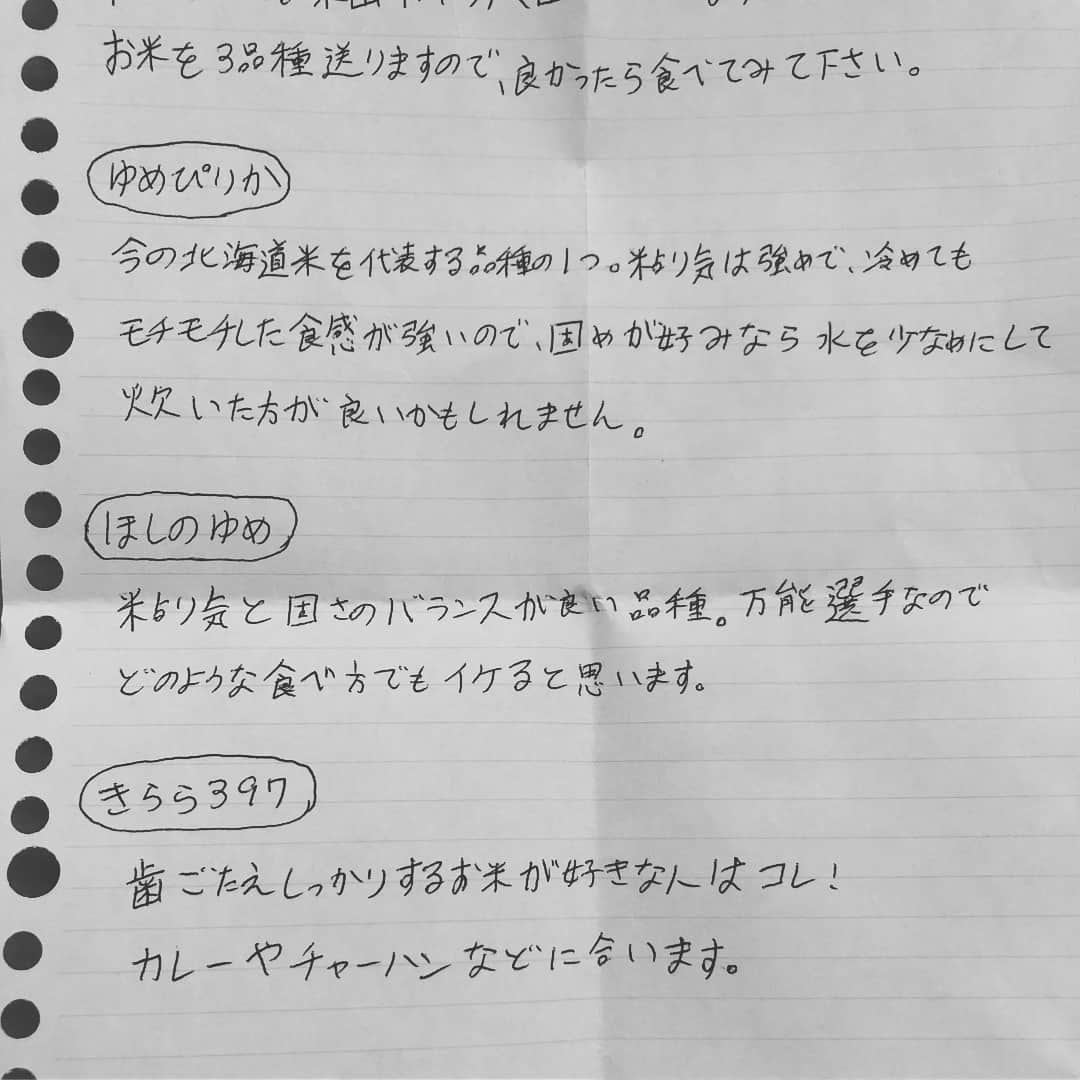 お米を3品種送りますので、良かったら食べてみて下さい。
ゆめぴりか
今の北海道米を代表する品種の1つ。粘り気は強めで、冷めても
モチモチした食感が強いので、固めが好みなら水を少なめにして
炊いた方が良いかもしれません。
ほしのゆめ
粘り気と固さのバランスが良い品種。万能選手なので
どのような食べ方でもイケると思います。
きらら397
歯ごたえしっかりするお米が好きな人はコレ!
カレーやチャーハンなどに合います。